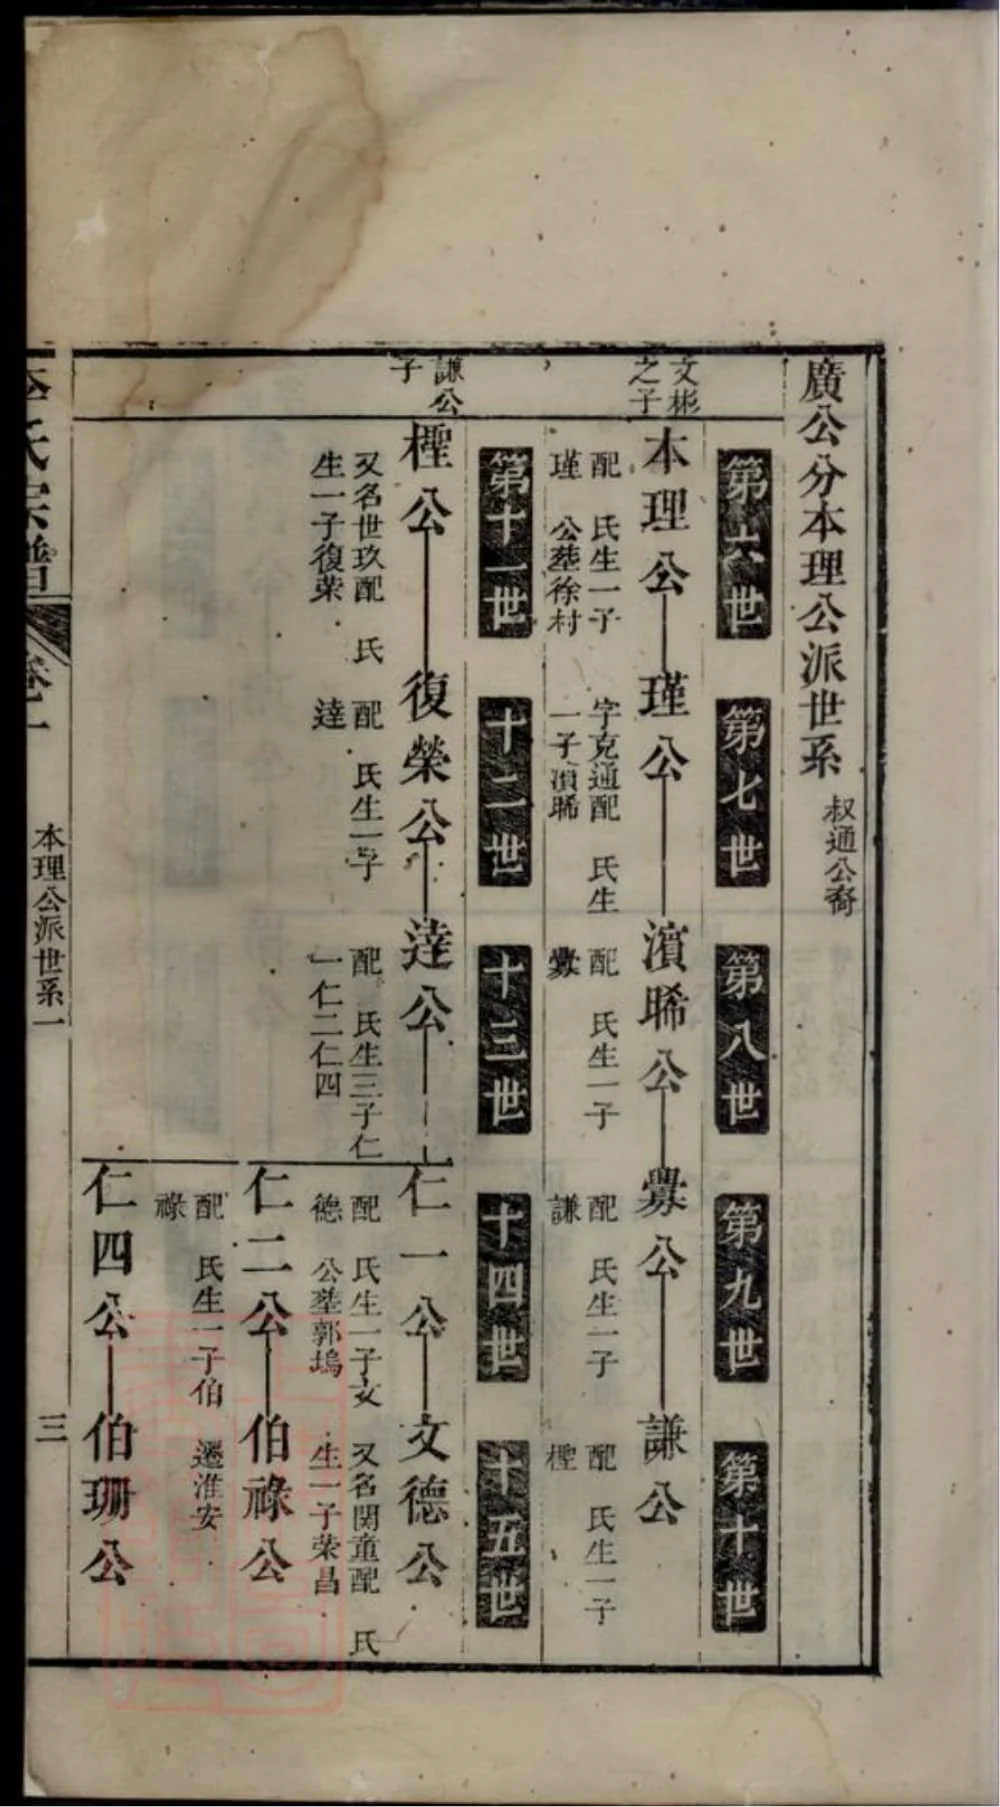 廣公分本理公派世系 叔通公裔
第六世 第七世 第八世 第九世 第十世
文彬
之子
本理公 瑾公 濵晞公 㸑公 謙公
配 氏生一子
瑾 公塟徐村
字克通配 氏生
一子濵晞
配 氏生一子
配 氏生一子
謙
配 氏生一子
檉
第十一世 十二世 十三世 十四世 十五世
謙公
子
檉公 復榮公 逹公 仁一公 文德公
又名世玖配 氏
生一子復荣
配 氏生一子
逹
配 氏生三子仁
一仁二仁四
配 氏生一子文
德 公塟郭塢
又名関童配 氏
生一子荣昌
仁二公 伯祿公
配 氏生一子伯
祿
遷淮安
仁四公 伯珊公
李氏宗譜 卷一 本理公派世系一 三